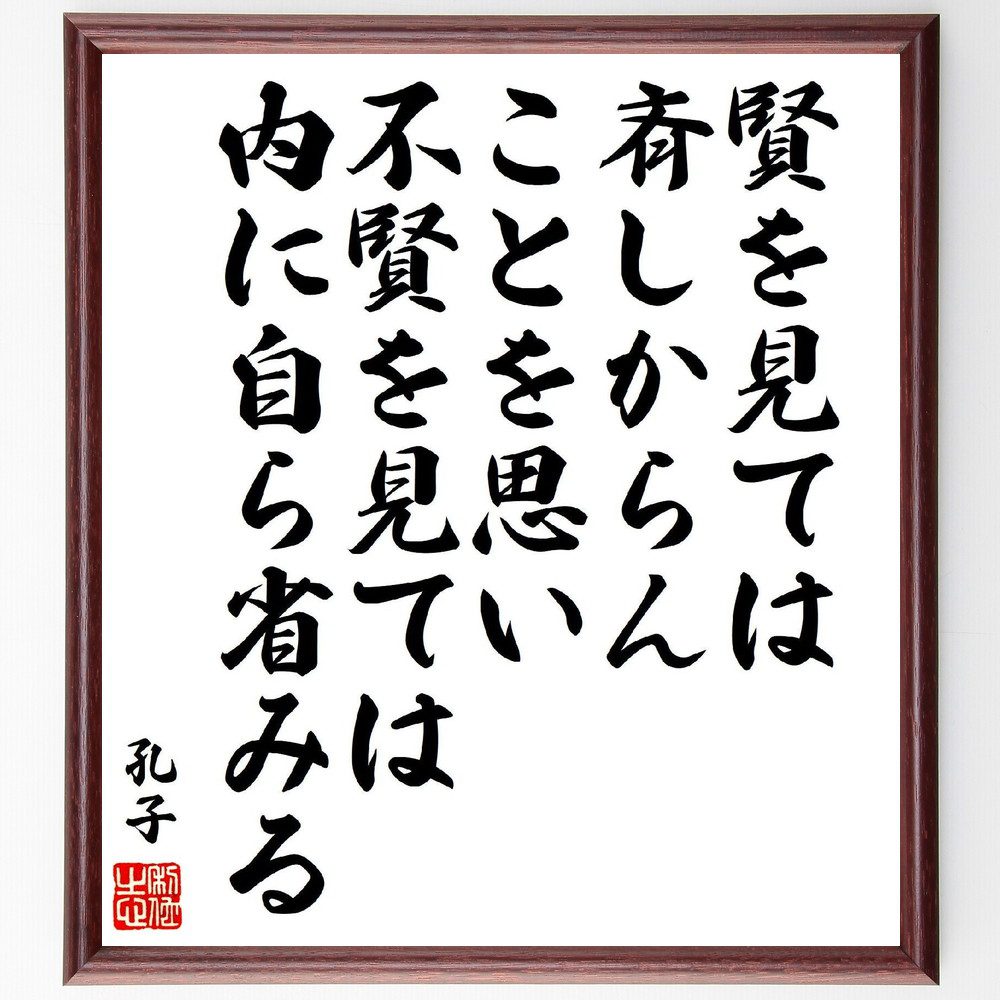 賢を見ては
斉しからん
ことを思い
不賢を見ては
内に自ら省みる
孔子